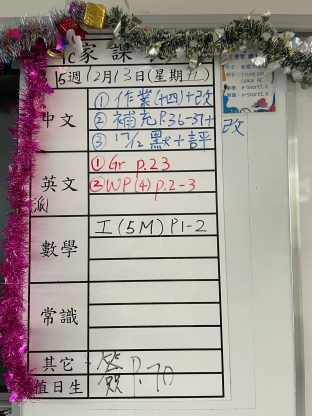 家課
15週12月13日(星期五)
中文
①作業(十四)+改
②補充P.36-37+改
③17/12默+評
英文
①Gr p.23
②WP(4)p.2-3
(派)
數學
工(5M)P1-2
常識
其它
簽
P.70
值日生